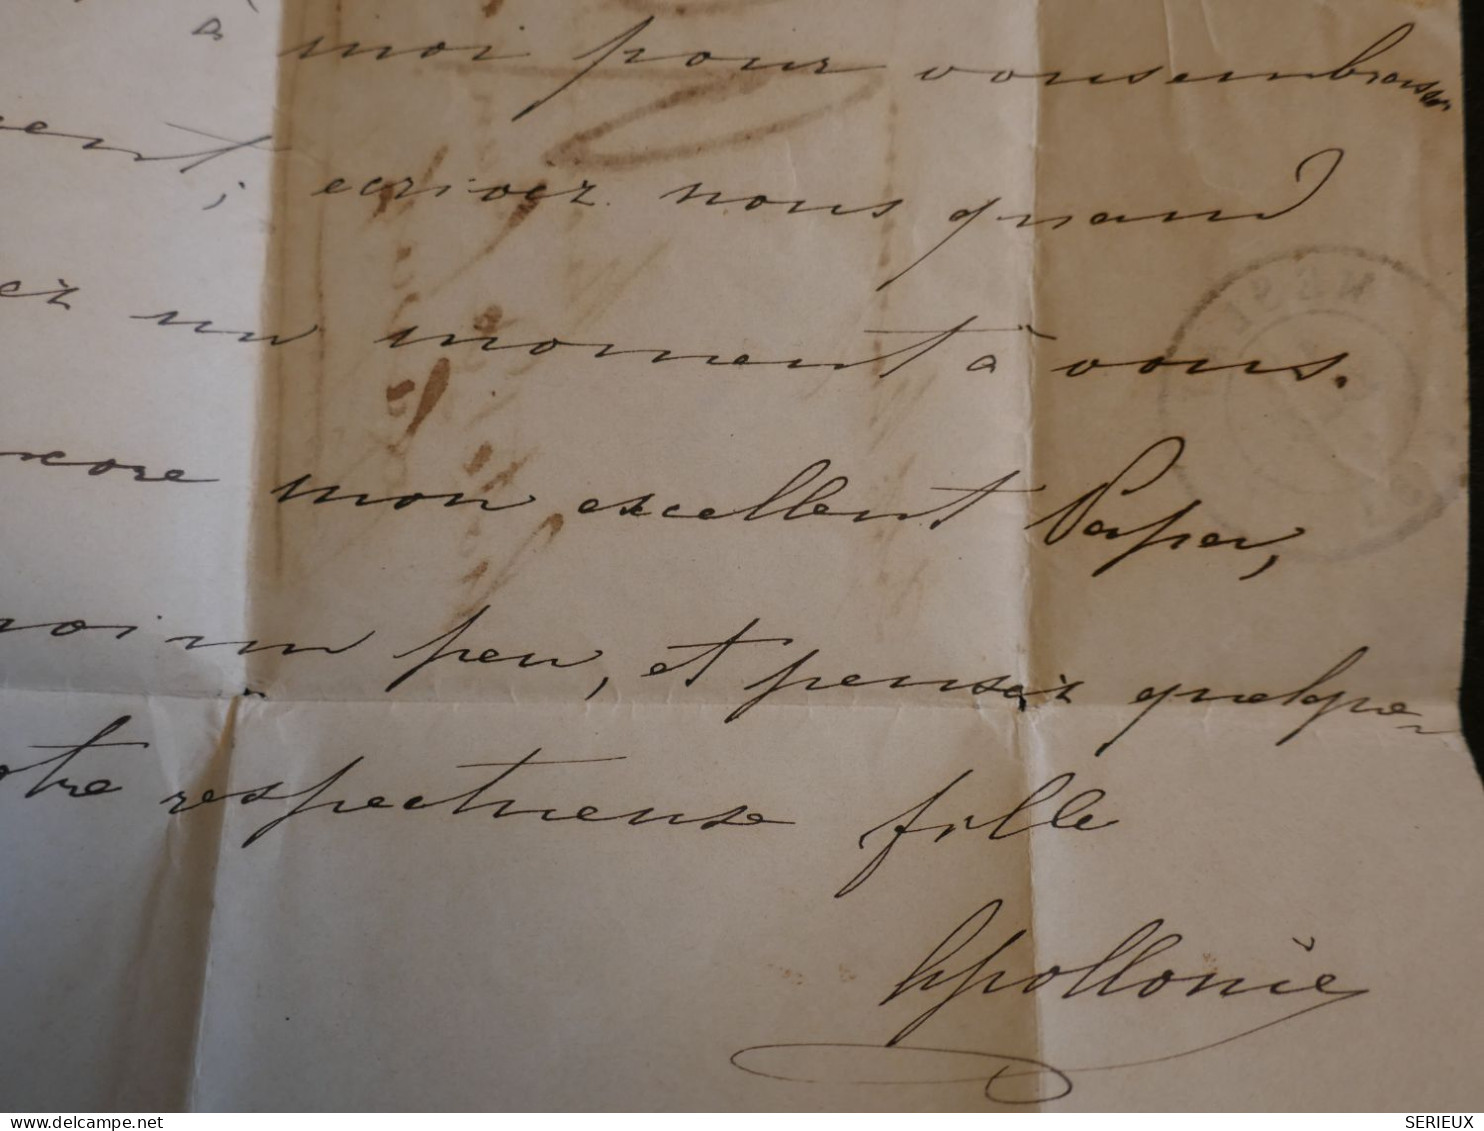 à moi pour vous embrasser
ent, ecrivez nous quand
ez un moment à vous.
core mon excellent Papa,
moi un peu, et pensez quelque
otre respectueuse fille
Apollonie
SERIEUX